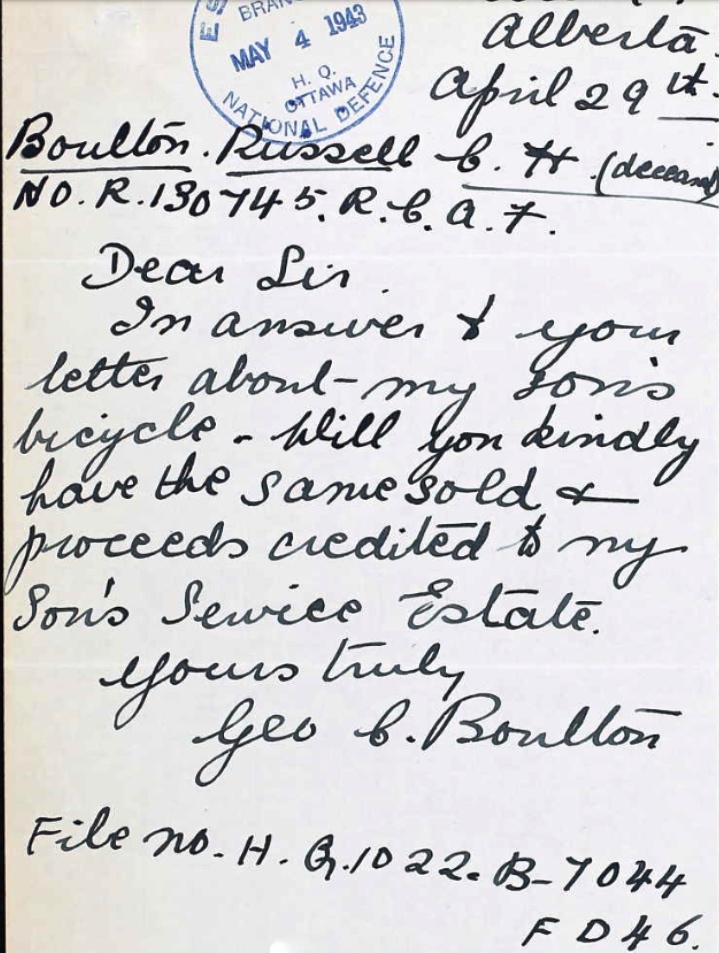 BRAN
MAY 4 1943
H. Q.
OTTAWA
NATIONAL DEFENCE
Alberta.
April 29th.
Boulton. Russell C. H. (deceased)
NO. R.130745. R.C.A.F.
Dear Sir.
In answer to your
letter about my son's
bicycle - Will you kindly
have the same sold &
proceeds credited to my
Son's Service Estate.
Yours truly
Geo C. Boulton
File no. H.Q.1022-B-7044
F D 46.